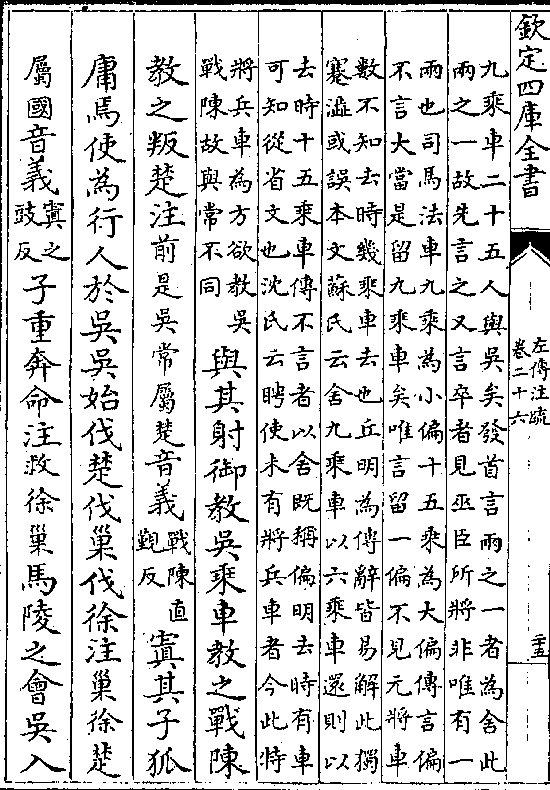 欽定四庫全書
左傳注疏
卷二十六
二十五
九乘車二十五人與吳矣發首言兩之一者為舍此
兩之一故先言之又言卒者見巫臣所將非唯有一
兩也司馬法車九乘為小偏十五乘為大偏傳言偏
不言大當是留九乘車矣唯言留一偏不見元將車
數不知去時幾乘車去也丘明為傳辭皆易解此獨
蹇澁或誤本文蘇氏云舍九乘車以六乘車還則以
去時十五乘車傳不言者以舍既稱偏明去時有車
可知從省文也沈氏云聘使未有將兵車者今此特
將兵車為方欲教吳
戰陳故與常不同
與其射御教吳乘車教之戰陳
教之叛楚注前是吳常屬楚音義
戰陳直
覲反
寘其子狐
庸焉使為行人於吳吳始伐楚伐巢伐徐注巢徐楚
屬國音義
寘之
豉反
子重奔命注救徐巢馬陵之會吳入